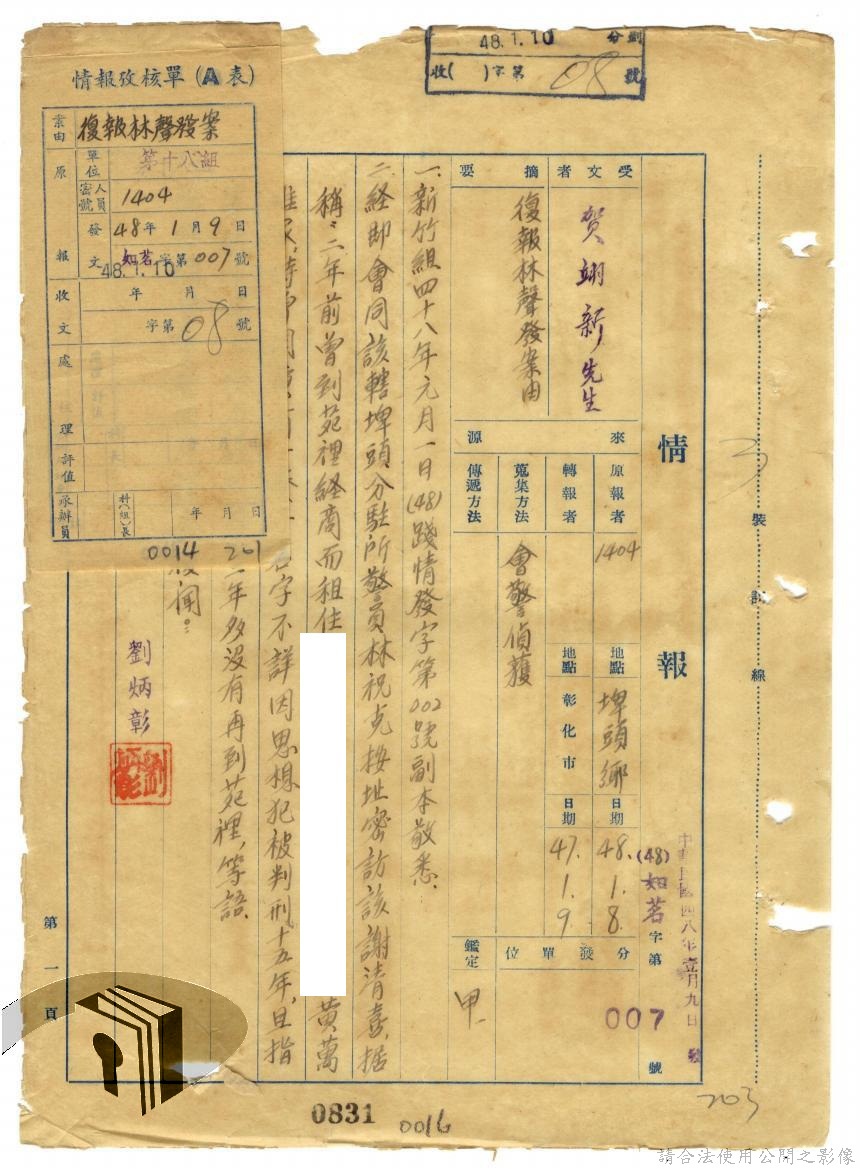 48.1.10
分
劉
收( )字第08號
情報攷核單(A表)
案由
復報林聲發案
原報
單位
第十八組
人員密號
1404
發文
48年1月9日
如茗字第007號
48.1.10
收文
年 月 日
字第08號
處理
年 月 日
評值
承辦員
科(組)長
年 月 日
0014
201
情報
中華民國四八年壹月九日發
(48)如茗字第007號
受文者
賀翊新先生
摘要
復報林聲發案由
來源
原報者
1404
地點
埤頭鄉
日期
48.1.8.
轉報者
地點
彰化市
日期
47.1.9.
蒐集方法
會警偵獲
傳遞方法
分發單位
鑑定
甲
一、新竹組四十八年元月一日(48)踐情發字第002號副本敬悉.
二、経即會同該轄埤頭分駐所警員林祝克按址密訪該謝清喜,据
稱:二年前曾到苑裡経商而租住
黃萬
名字不詳因思想犯被判刑十五年,且指
年多沒有再到苑裡,等語.
聞:
劉炳彰
裝訂線
第一頁
0831
0016
203
請合法使用公開之影像